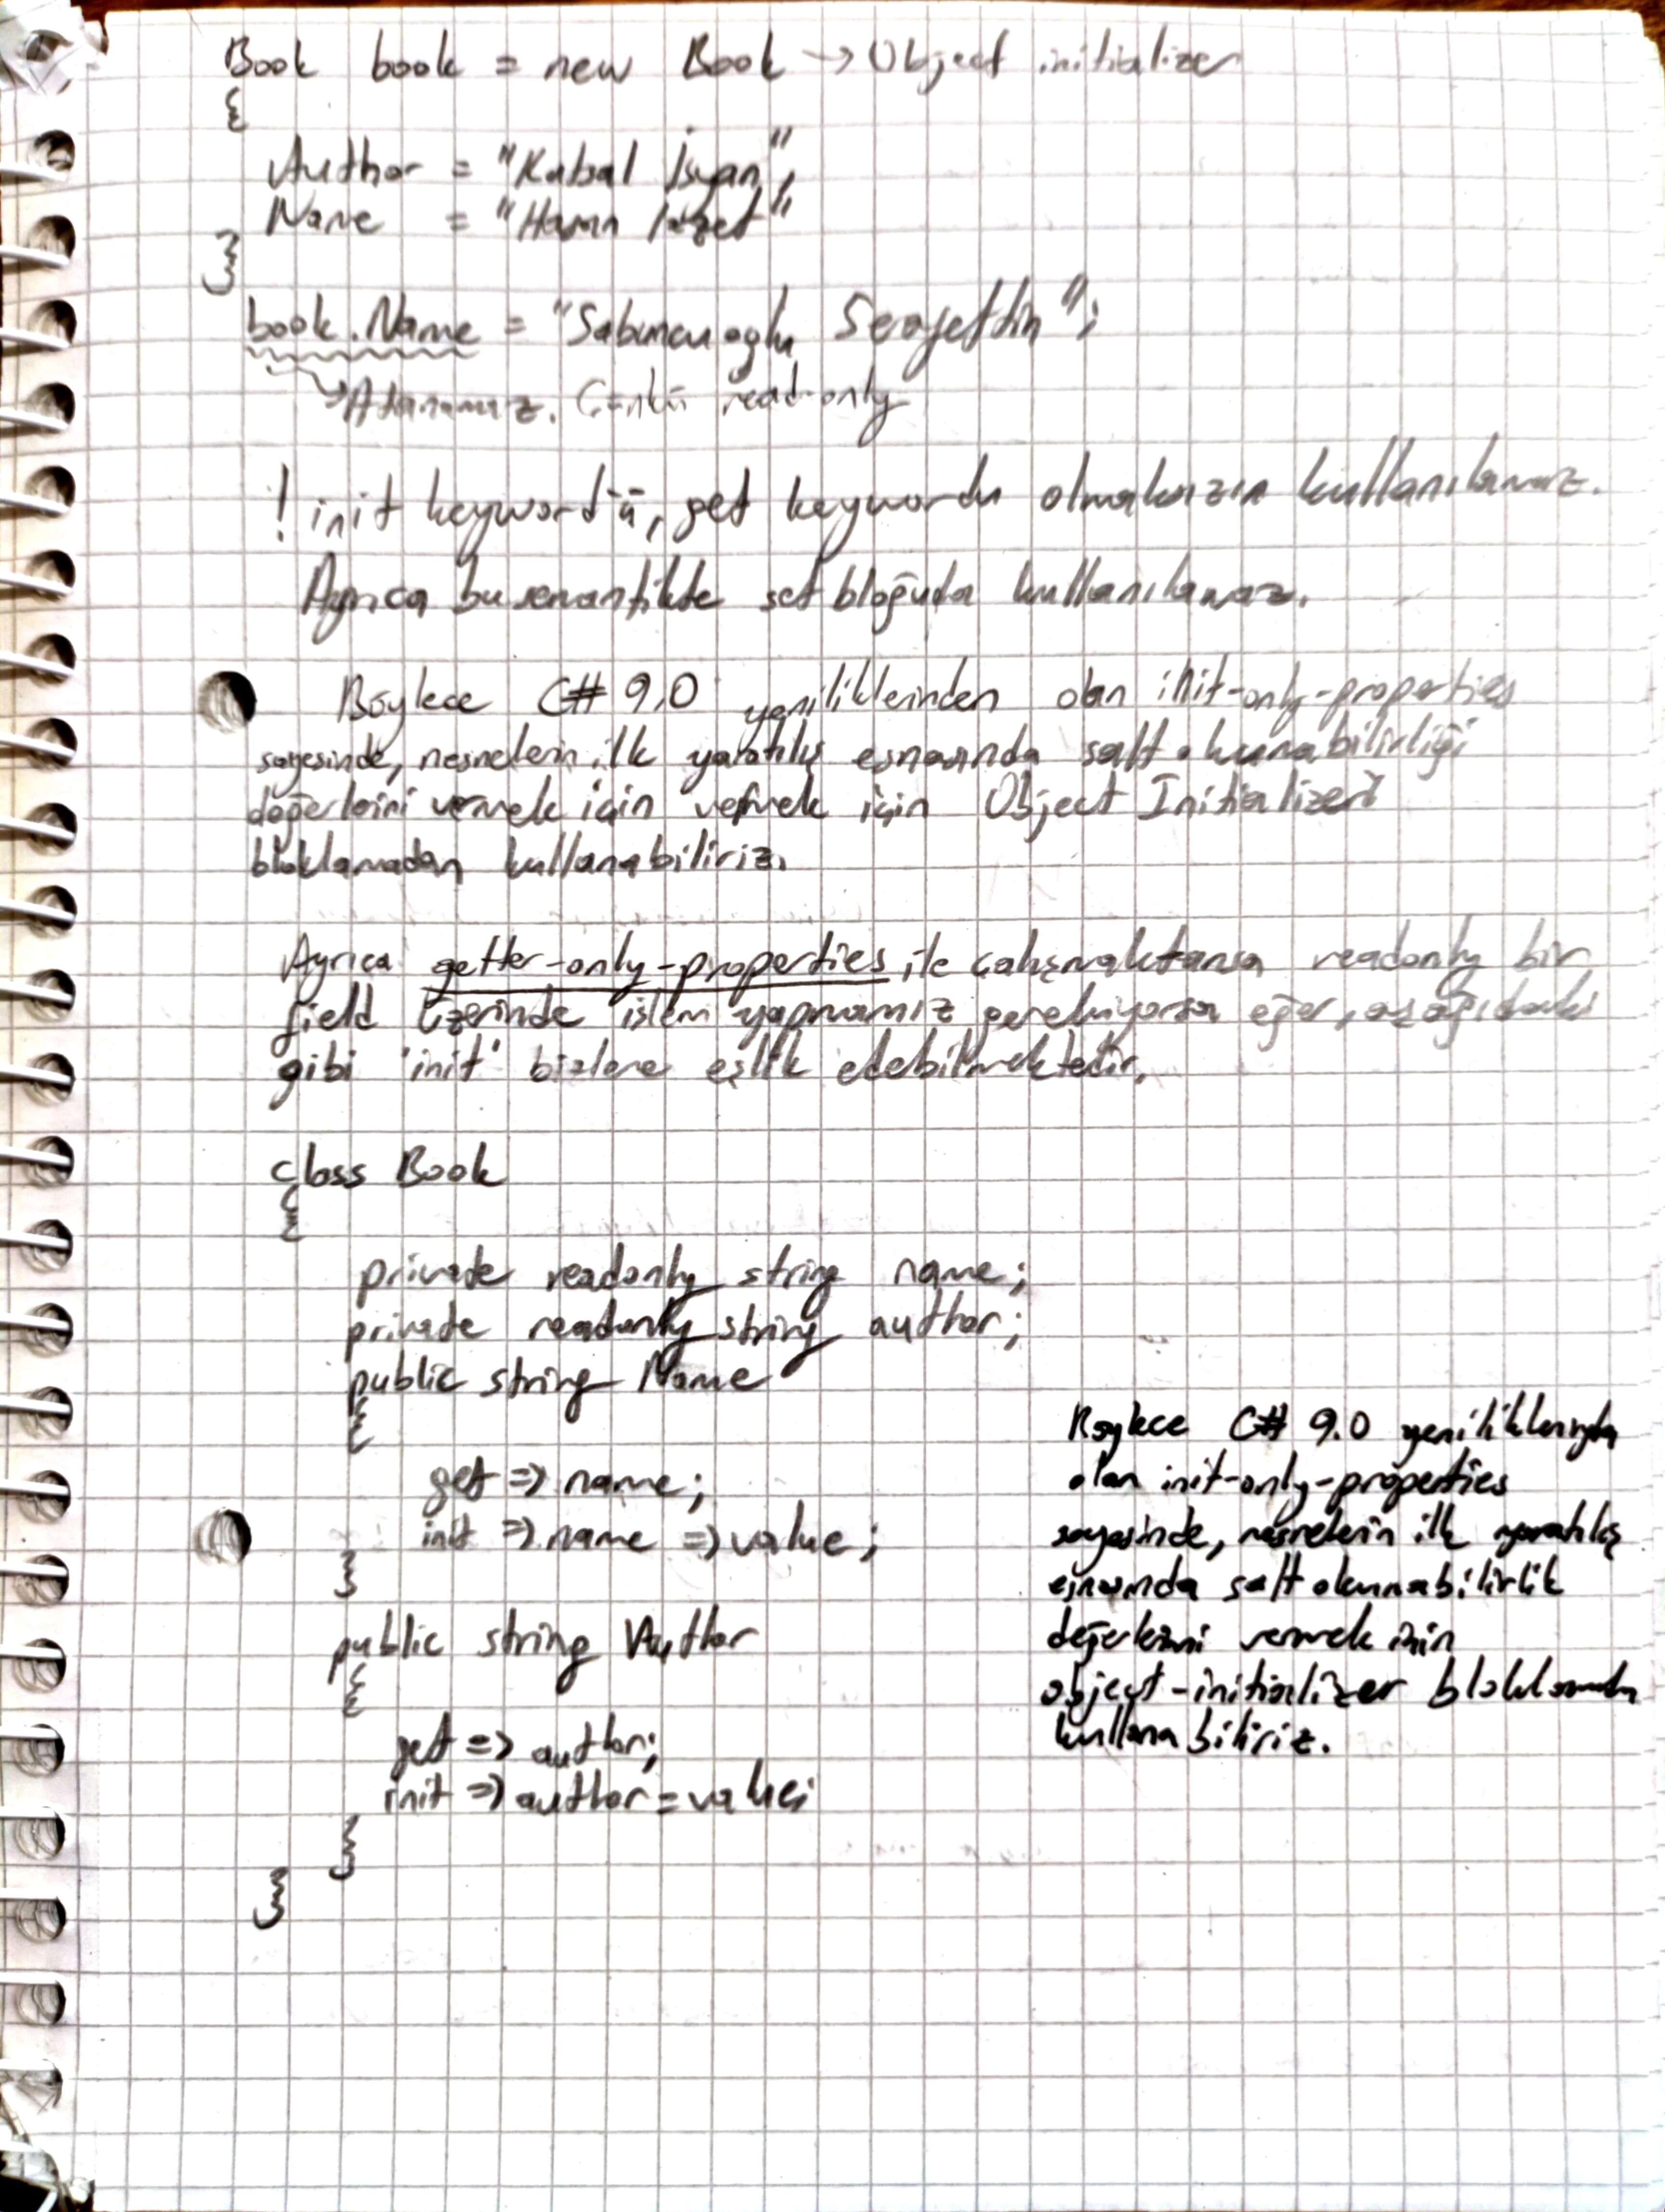 Book book = new Book → Object initializer
{
Author = "Kabal İsyan",
Name = "Hasan İzzet"
}
book.Name = "Sabuncuoglu Serafettin";
Atanamaz. Çünkü read-only
! init keyword'ü, get keywordu olmaksızın kullanılamaz.
Ayrıca bu semantikte set bloğuda kullanılamaz.
Böylece C# 9.0 yeniliklerinden olan init-only-properties
sayesinde, nesnelerin ilk yaratılış esnasında salt okunabilirliği
değerlerini vermek için vermek için Object Initializer'ı
bloklamadan kullanabiliriz.
Ayrıca getter-only-properties ile çalışmaktansa readonly bir
field üzerinde işlem yapmamız gerekiyorsa eğer, aşağıdaki
gibi 'init' bizlere eşlik edebilmektedir.
class Book
{
private readonly string name;
private readonly string author;
public string Name
{
get => name;
init => name => value;
}
public string Author
{
get => author;
init => author = value;
}
}
Böylece C# 9.0 yeniliklerinden
olan init-only-properties
sayesinde, nesnelerin ilk yaratılış
esnasında salt okunabilirlik
değerlerini vermek için
object-initializer bloklamadan
kullanabiliriz.